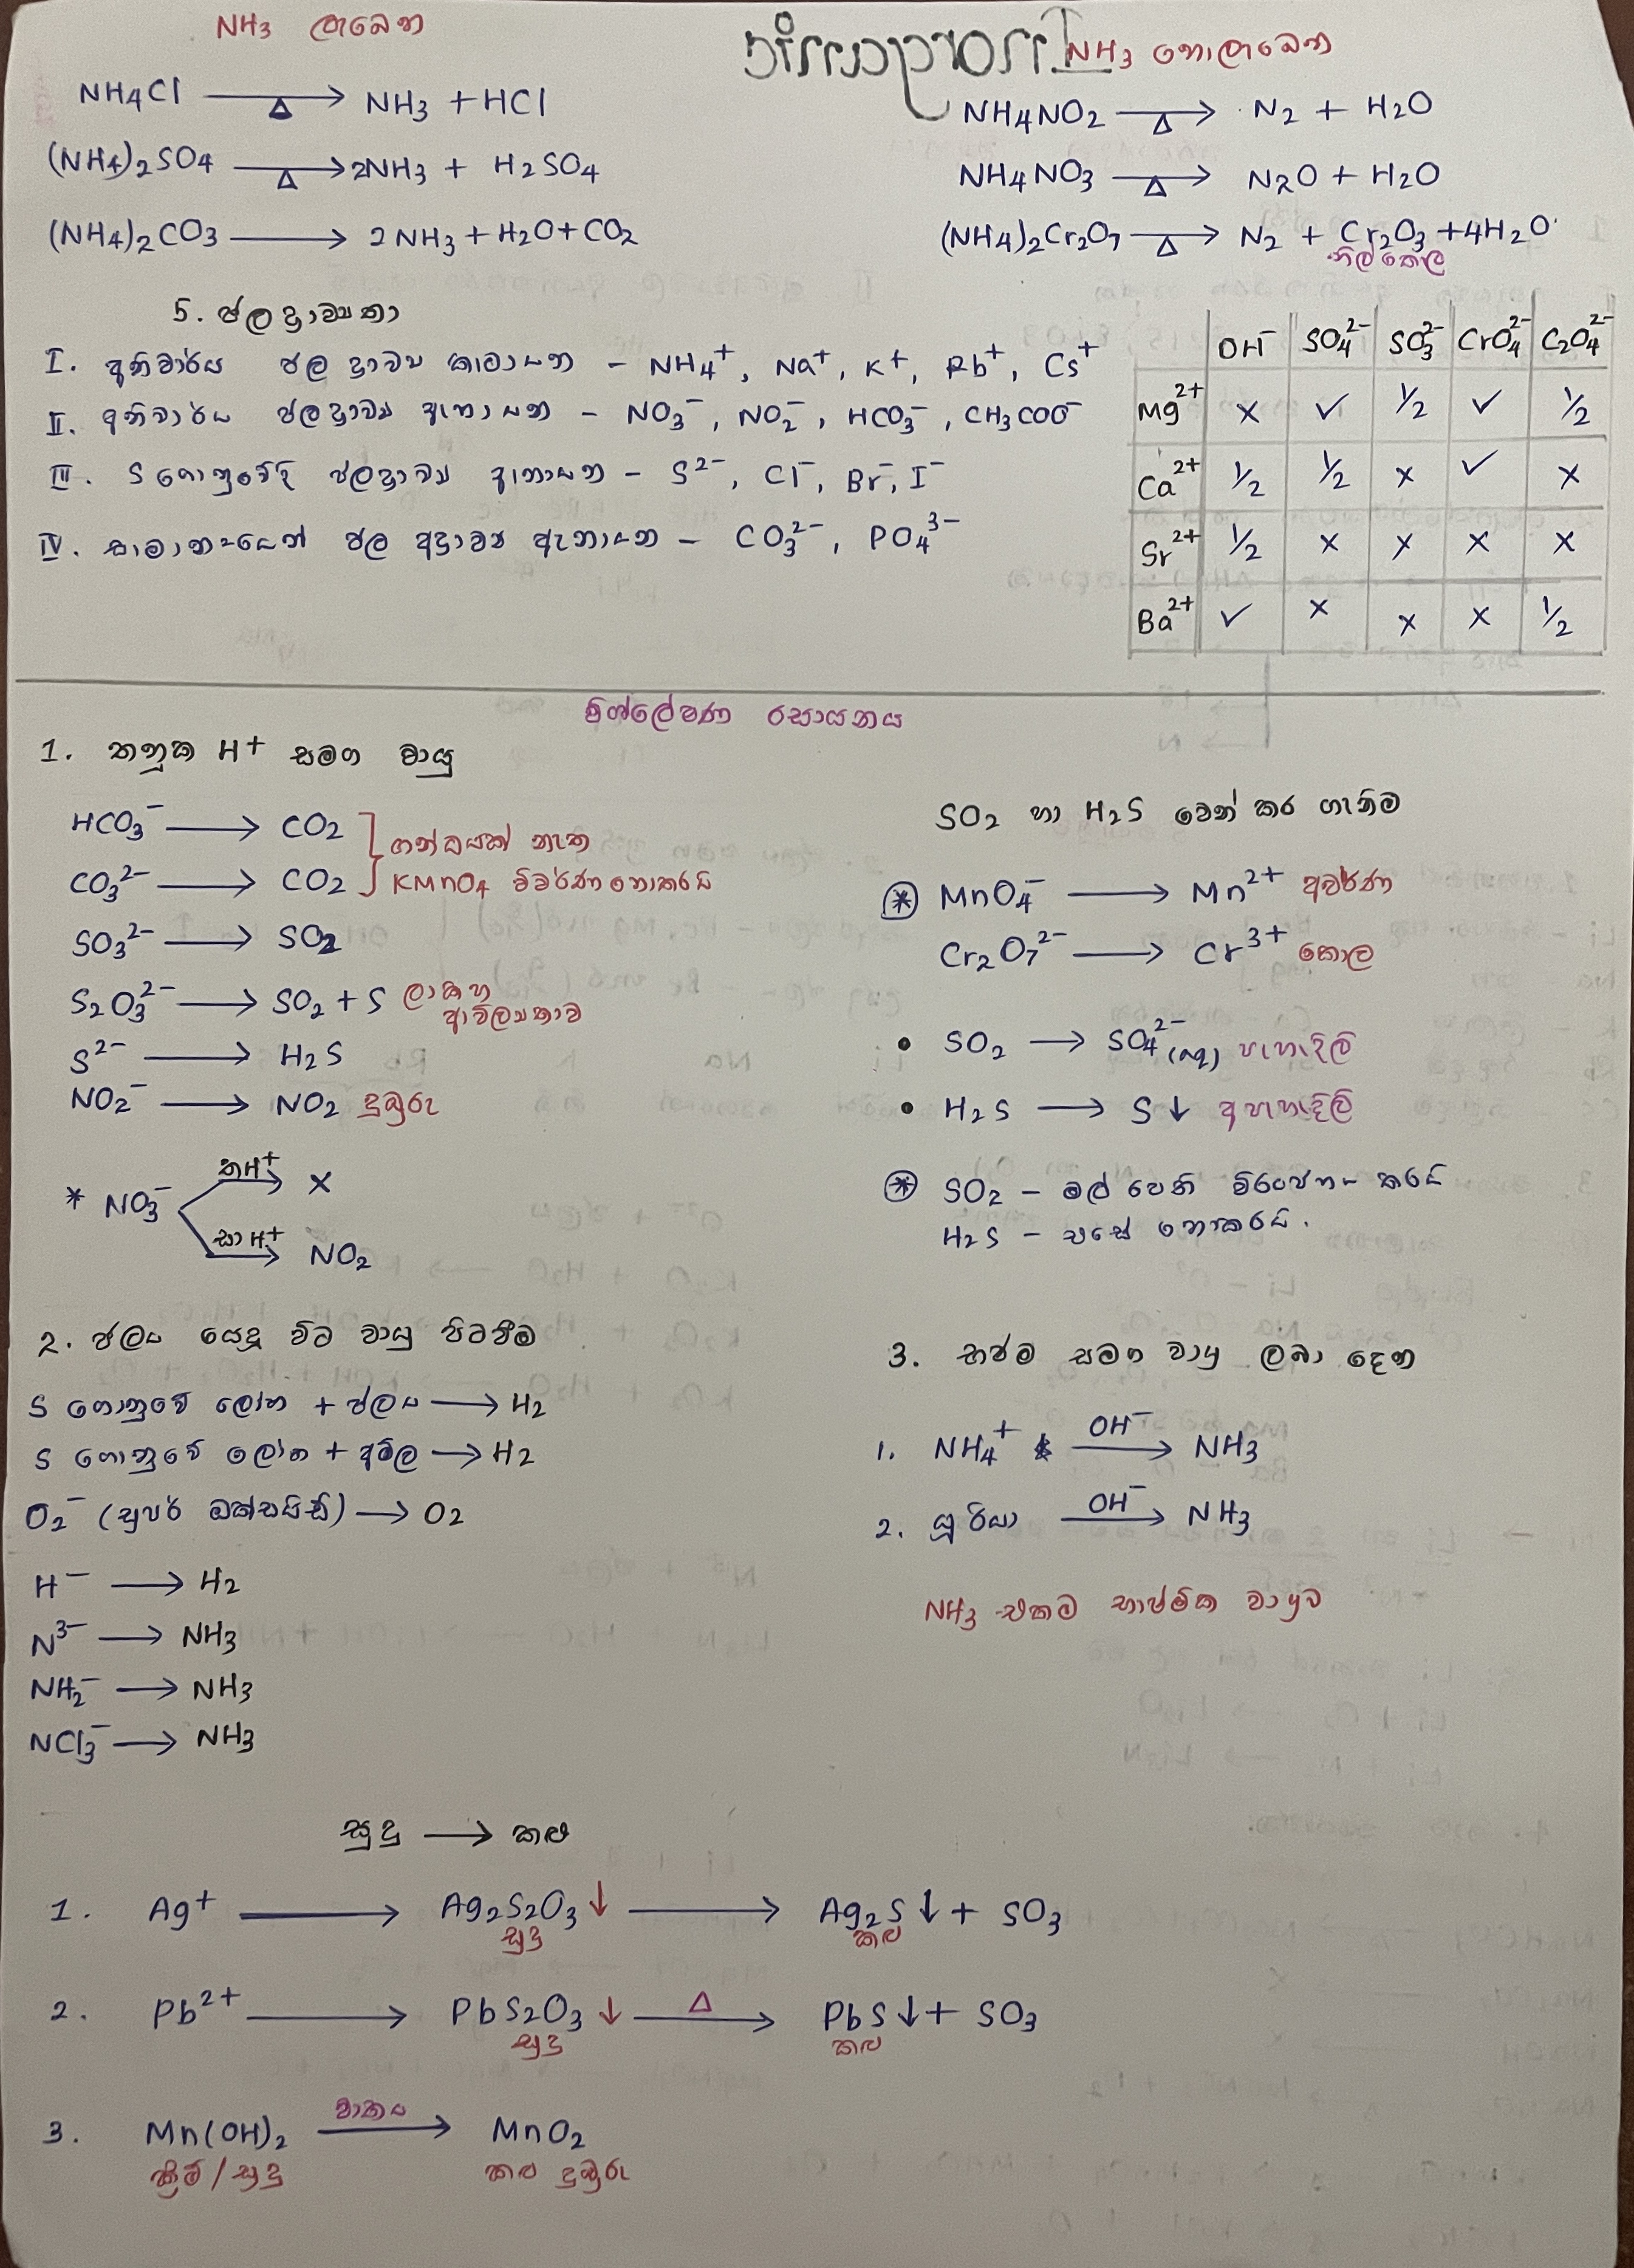 NH3 ලැබෙන
NH4Cl —Δ→ NH3 + HCl
(NH4)2SO4 —Δ→ 2NH3 + H2SO4
(NH4)2CO3 ⟶ 2NH3 + H2O + CO2
Inorganic
NH3 නොලැබෙන
NH4NO2 —Δ→ N2 + H2O
NH4NO3 —Δ→ N2O + H2O
(NH4)2Cr2O7 —Δ→ N2 + Cr2O3 + 4H2O
නිල් කොල
5. ජල ද්‍රාව්‍යතා
I. අනිවාර්ය ජල ද්‍රාව්‍ය කැටායන – NH4⁺, Na⁺, K⁺, Rb⁺, Cs⁺
II. අනිවාර්ය ජලද්‍රාව්‍ය ඇනායන – NO3⁻, NO2⁻, HCO3⁻, CH3COO⁻
III. S ගොනුවේදී ජලද්‍රාව්‍ය ඇනායන – S²⁻, Cl⁻, Br⁻, I⁻
IV. සාමාන්‍යයෙන් ජල අද්‍රාව්‍ය ඇනායන – CO3²⁻, PO4³⁻
OH⁻ SO4²⁻ SO3²⁻ CrO4²⁻ C2O4²⁻
Mg²⁺ × ✓ ½ ✓ ½
Ca²⁺ ½ ½ × ✓ ×
Sr²⁺ ½ × × × ×
Ba²⁺ ✓ × × × ½
විශ්ලේෂණ රසායනය
1. තනුක H⁺ සමග වායු
HCO3⁻ ⟶ CO2
CO3²⁻ ⟶ CO2
ගන්ධයක් නැත
KMnO4 විවර්ණ නොකරයි
SO3²⁻ ⟶ SO2
S2O3²⁻ ⟶ SO2 + S ලා කහ
ආවිලතාව
S²⁻ ⟶ H2S
NO2⁻ ⟶ NO2 දුඹුරු
* NO3⁻ තH⁺ → ×
සාH⁺ → NO2
SO2 හා H2S වෙන් කර ගැනීම
⊛ MnO4⁻ ⟶ Mn²⁺ අවර්ණ
Cr2O7²⁻ ⟶ Cr³⁺ කොල
• SO2 ⟶ SO4²⁻(aq) පැහැදිලි
• H2S ⟶ S↓ අපැහැදිලි
⊛ SO2 – මල් පෙති විරංජනය කරයි
H2S – එසේ නොකරයි.
2. ජලය යෙදූ විට වායු පිටවීම
S ගොනුවේ ලෝහ + ජලය ⟶ H2
S ගොනුවේ ලෝහ + අම්ල ⟶ H2
O2⁻ (සුපර් ඔක්සයිඩ්) ⟶ O2
H⁻ ⟶ H2
N³⁻ ⟶ NH3
NH2⁻ ⟶ NH3
NCl3⁻ ⟶ NH3
3. භෂ්ම සමග වායු ලබා දෙන
1. NH4⁺ —OH⁻→ NH3
2. යූරියා —OH⁻→ NH3
NH3 එකම භාෂ්මික වායුව
සුදු ⟶ කළු
1. Ag⁺ ⟶ Ag2S2O3↓ ⟶ Ag2S↓ + SO3
සුදු කළු
2. Pb²⁺ ⟶ PbS2O3↓ —Δ→ PbS↓ + SO3
සුදු කළු
3. Mn(OH)2 —වාතය→ MnO2
ක්‍රීම්/සුදු කළු දුඹුරු